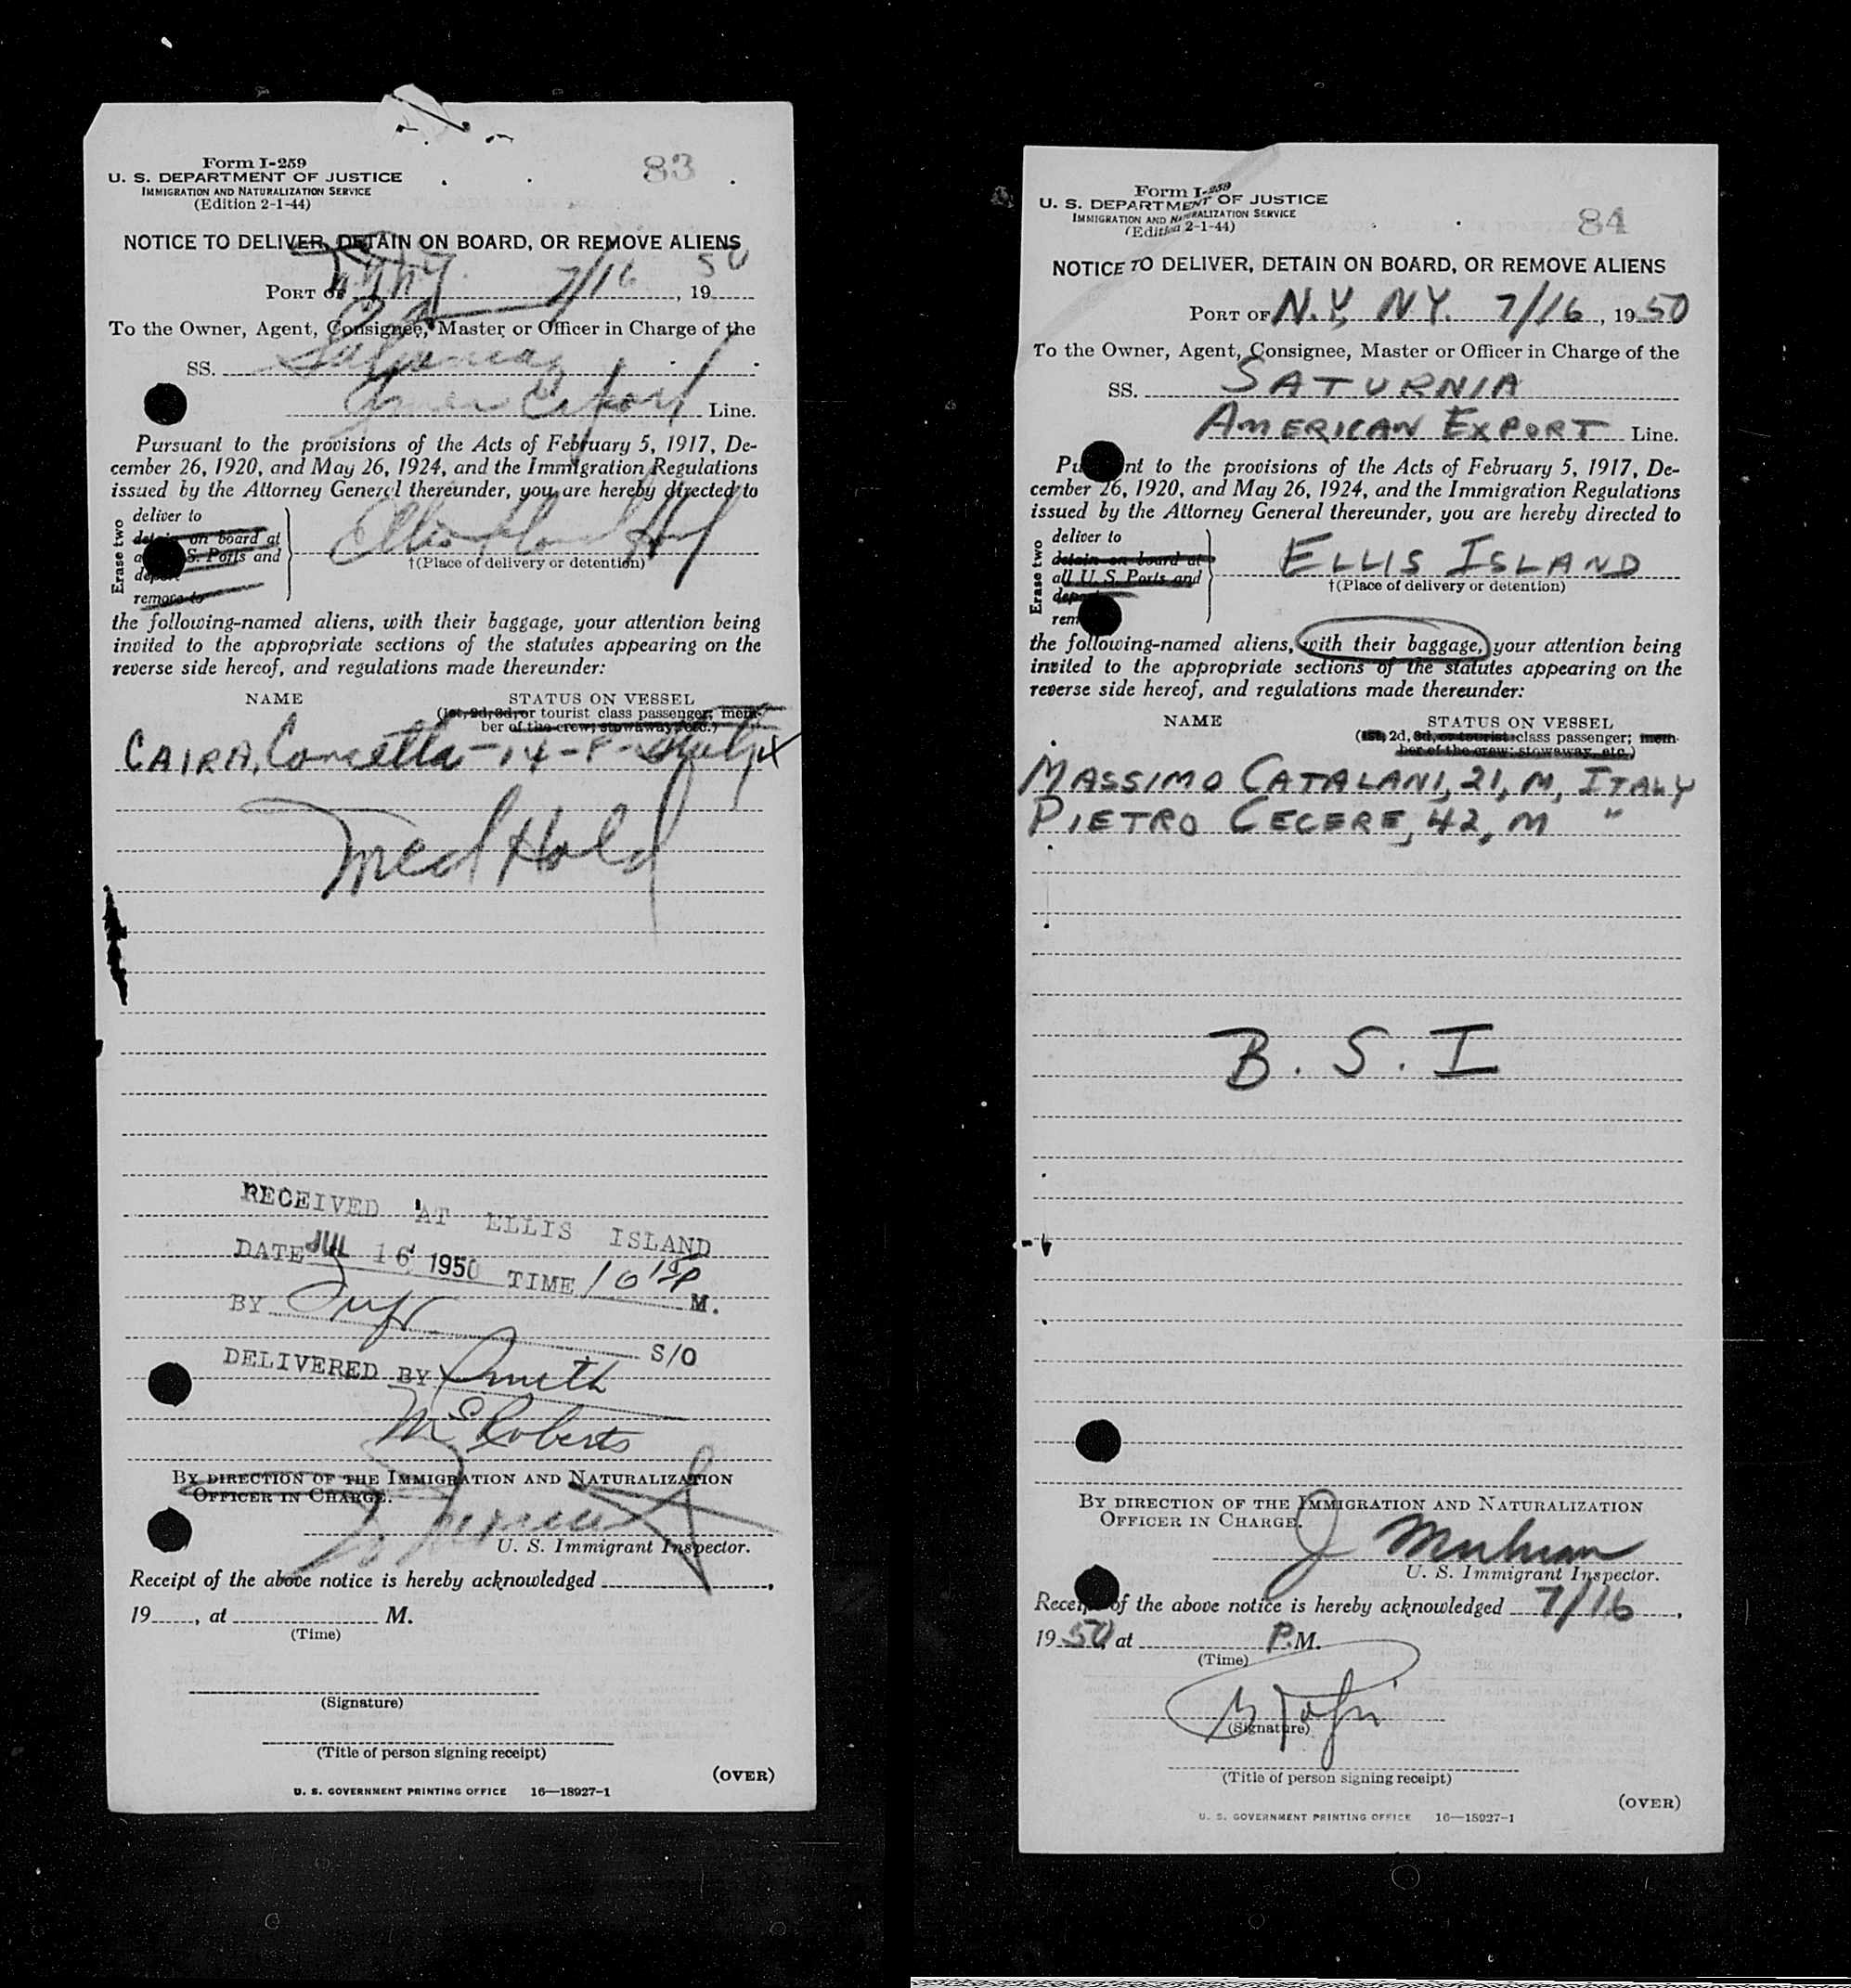 Form I-259
U. S. DEPARTMENT OF JUSTICE
IMMIGRATION AND NATURALIZATION SERVICE
(Edition 2-1-44)
83
NOTICE TO DELIVER, DETAIN ON BOARD, OR REMOVE ALIENS
PORT OF NY NY 7/16, 19 50
To the Owner, Agent, Consignee, Master, or Officer in Charge of the
SS. Saturnia
Amer Export Line.
Pursuant to the provisions of the Acts of February 5, 1917, De-
cember 26, 1920, and May 26, 1924, and the Immigration Regulations
issued by the Attorney General thereunder, you are hereby directed to
Erase two
deliver to
detain on board at
all U. S. Ports and
deport
remove to
Ellis Island
†(Place of delivery or detention)
the following-named aliens, with their baggage, your attention being
invited to the appropriate sections of the statutes appearing on the
reverse side hereof, and regulations made thereunder:
NAME STATUS ON VESSEL
(1st, 2d, 3d, or tourist class passenger; mem-
ber of the crew; stowaway, etc.)
CAIRA, Concetta - 14 - F - Italy X
Med Hold
RECEIVED AT ELLIS ISLAND
DATE JUL 16 1950 TIME 10 15 P M.
BY S/O
DELIVERED BY Smith
McRoberts
BY DIRECTION OF THE IMMIGRATION AND NATURALIZATION
OFFICER IN CHARGE.
U. S. Immigrant Inspector.
Receipt of the above notice is hereby acknowledged ,
19 , at M.
(Time)
(Signature)
(Title of person signing receipt)
(OVER)
U. S. GOVERNMENT PRINTING OFFICE 16—18927-1
Form I-259
U. S. DEPARTMENT OF JUSTICE
IMMIGRATION AND NATURALIZATION SERVICE
(Edition 2-1-44)
84
NOTICE TO DELIVER, DETAIN ON BOARD, OR REMOVE ALIENS
PORT OF N.Y, NY. 7/16, 19 50
To the Owner, Agent, Consignee, Master or Officer in Charge of the
SS. SATURNIA
AMERICAN EXPORT Line.
Pursuant to the provisions of the Acts of February 5, 1917, De-
cember 26, 1920, and May 26, 1924, and the Immigration Regulations
issued by the Attorney General thereunder, you are hereby directed to
Erase two
deliver to
detain on board at
all U. S. Ports and
deport
rem
ELLIS ISLAND
†(Place of delivery or detention)
the following-named aliens, with their baggage, your attention being
invited to the appropriate sections of the statutes appearing on the
reverse side hereof, and regulations made thereunder:
NAME STATUS ON VESSEL
(1st, 2d, 3d, or tourist class passenger; mem-
ber of the crew; stowaway, etc.)
MASSIMO CATALANI, 21, M, ITALY
PIETRO CECERE, 42, M "
B. S. I
BY DIRECTION OF THE IMMIGRATION AND NATURALIZATION
OFFICER IN CHARGE.
U. S. Immigrant Inspector.
Receipt of the above notice is hereby acknowledged 7/16,
19 50, at P.M.
(Time)
(Signature)
(Title of person signing receipt)
(OVER)
U. S. GOVERNMENT PRINTING OFFICE 16—18927-1